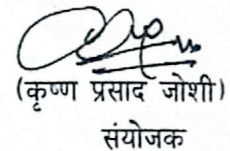 (कृष्ण प्रसाद जोशी)
संयोजक